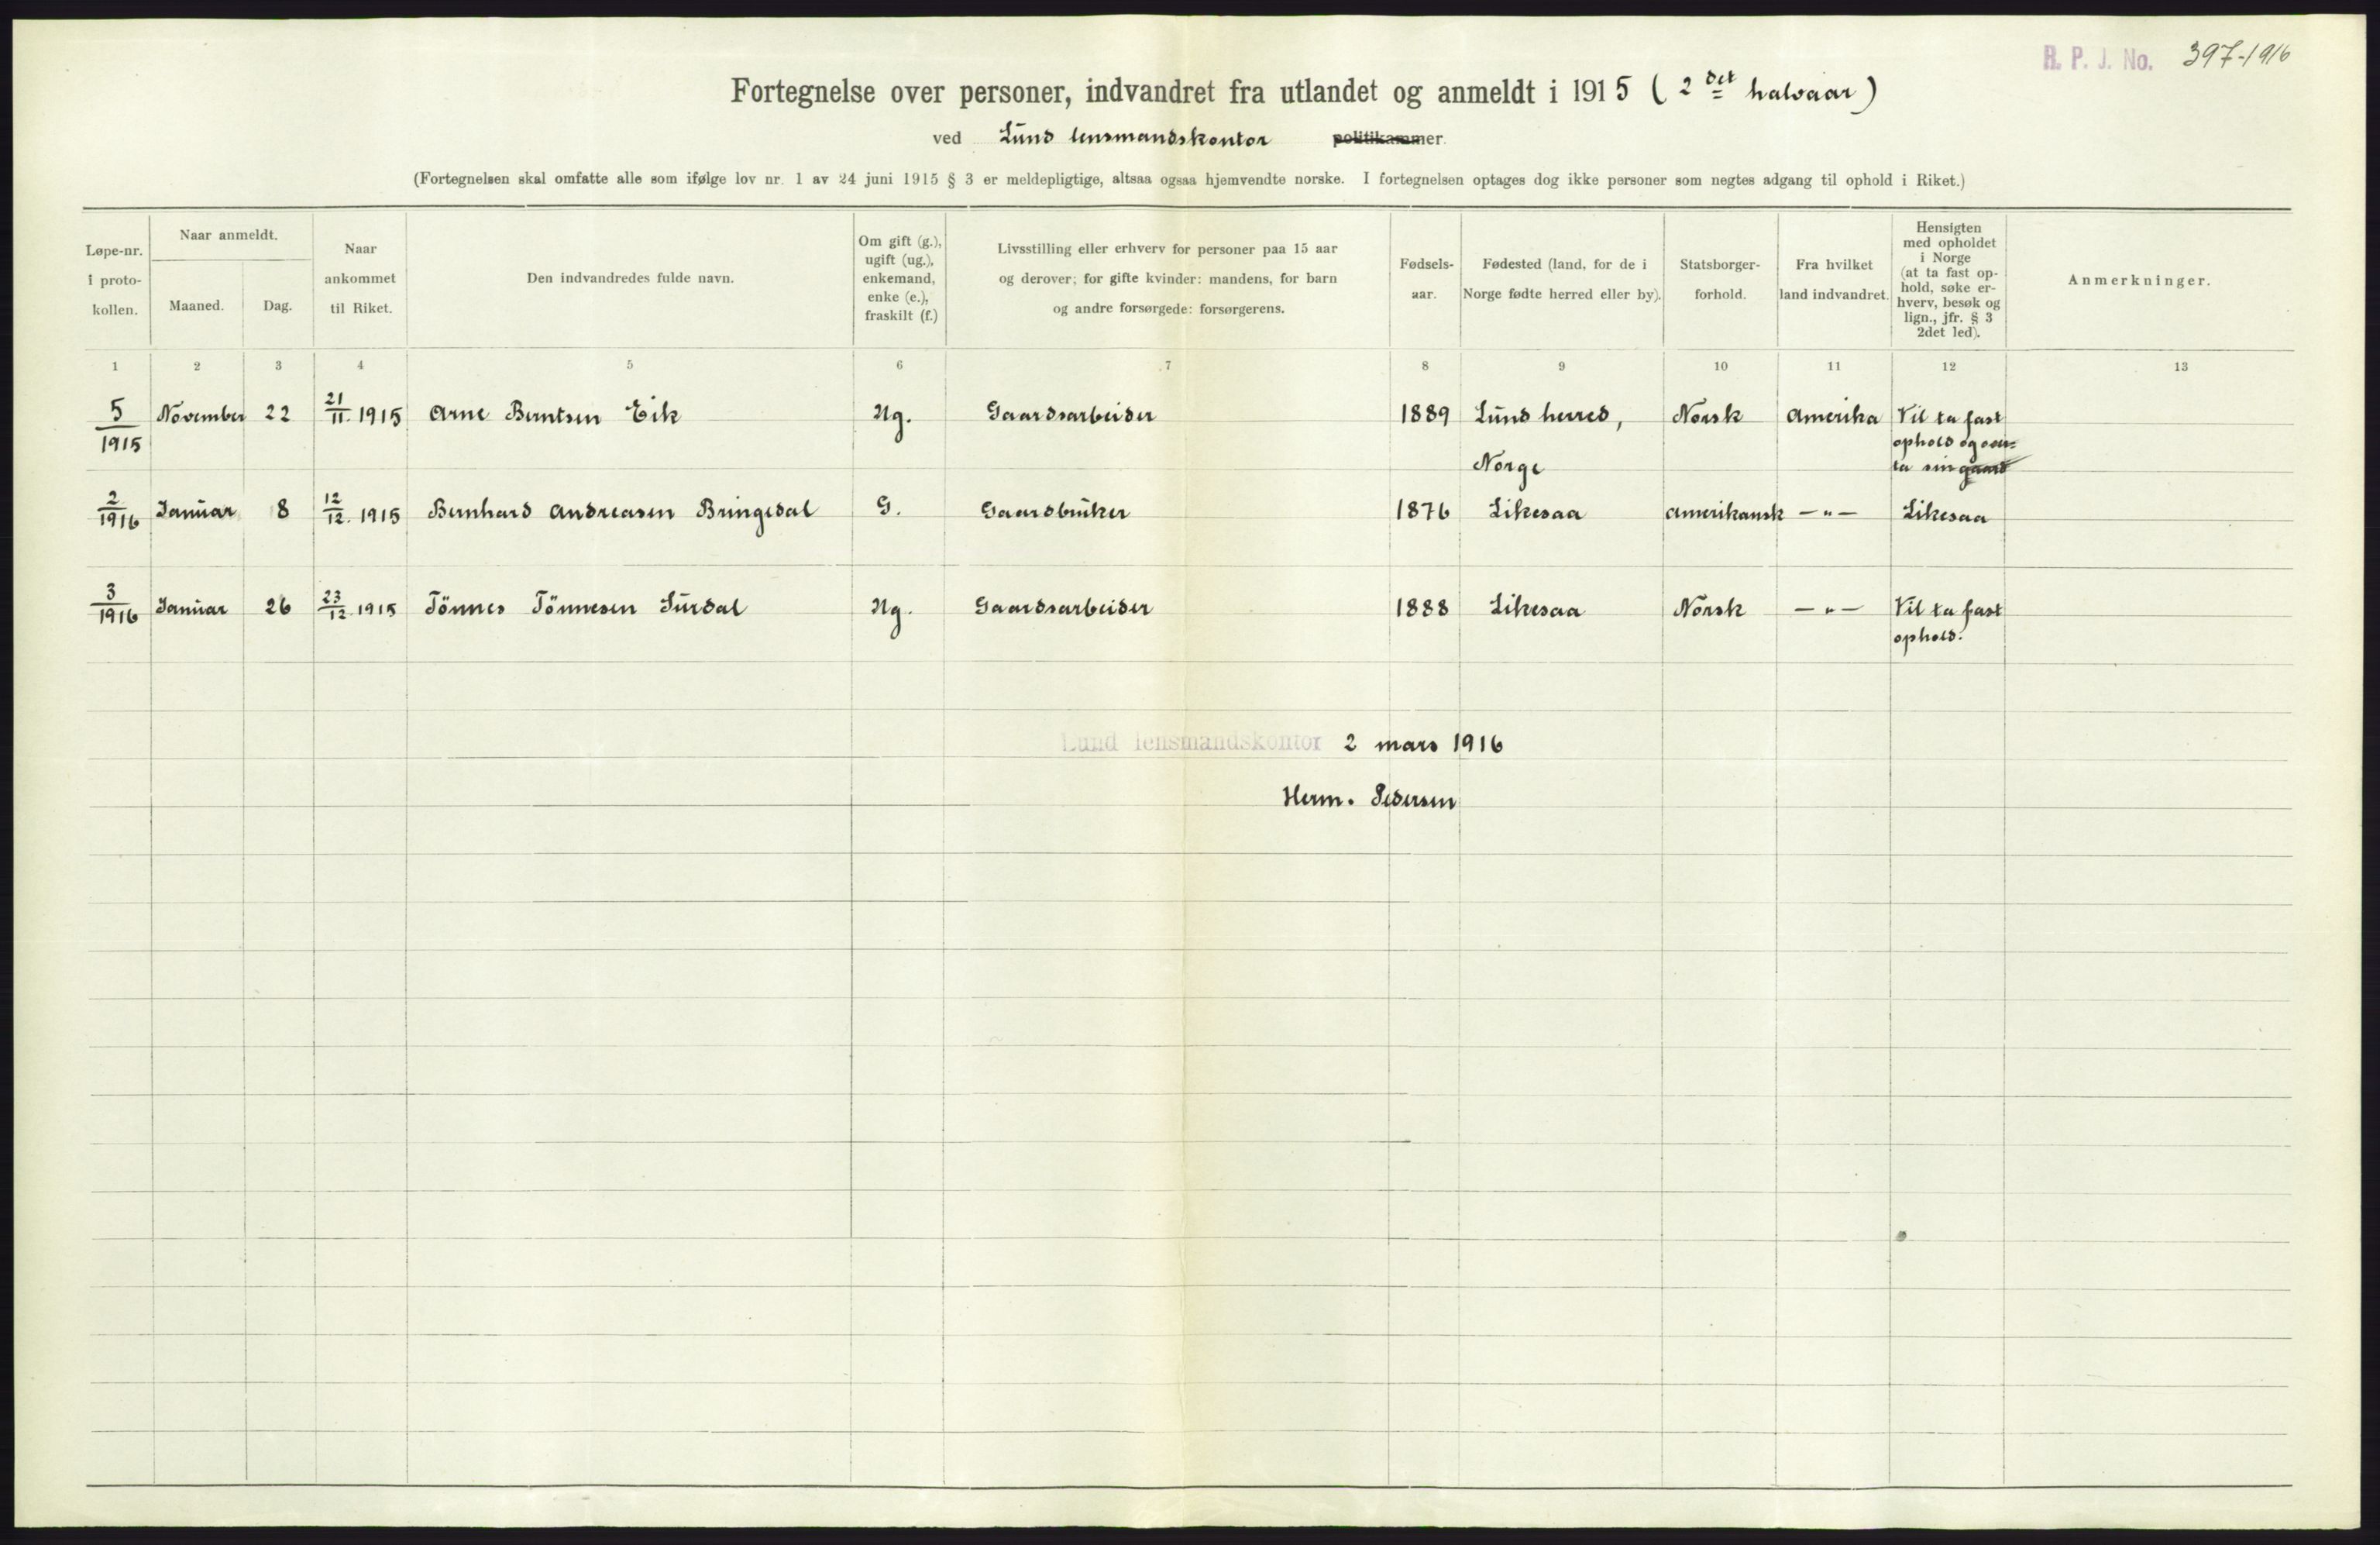 R. P. J. No. 397-1916
Fortegnelse over personer, indvandret fra utlandet og anmeldt i 1915 (2det halvaar)
ved Lund lensmandskontor politikammer.
(Fortegnelsen skal omfatte alle som ifølge lov nr. 1 av 24 juni 1915 § 3 er meldepligtige, altsaa ogsaa hjemvendte norske. I fortegnelsen optages dog ikke personer som negtes adgang til ophold i Riket.)
Løpe-nr.
i proto-
kollen.
Naar anmeldt.
Maaned.
Dag.
Naar
ankommet
til Riket.
Den indvandredes fulde navn.
Om gift (g.),
ugift (ug.),
enkemand,
enke (e.),
fraskilt (f.)
Livsstilling eller erhverv for personer paa 15 aar
og derover; for gifte kvinder: mandens, for barn
og andre forsørgede: forsørgerens.
Fødsels-
aar.
Fødested (land, for de i
Norge fødte herred eller by).
Statsborger-
forhold.
Fra hvilket
land indvandret.
Hensigten
med opholdet
i Norge
(at ta fast op-
hold, søke er-
hverv, besøk og
lign., jfr. § 3
2det led).
Anmerkninger.
1 2 3 4 5 6 7 8 9 10 11 12 13
5/1915 November 22 21/11. 1915 Arne Berntsen Eik Ug. Gaardsarbeider 1889 Lund herred, Norsk Amerika Vil ta fast
ophold og over=
Norge ta sin gaard
2/1916 Januar 8 12/12. 1915 Bernhard Andreasen Bringedal G. Gaardbruker 1876 Likesaa amerikansk —"— Likesaa
3/1916 Januar 26 23/12. 1915 Tönnes Tönnesen Surdal Ug. Gaardsarbeider 1888 Likesaa Norsk —"— Vil ta fast
ophold.
Lund lensmandskontor 2 mars 1916
Herm. Pedersen